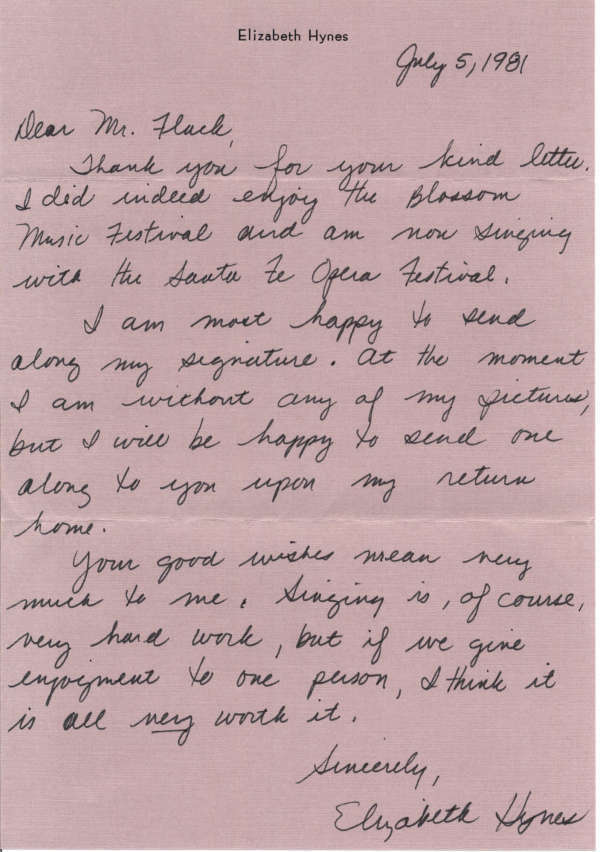 Elizabeth Hynes
July 5, 1981
Dear Mr. Flack,
Thank you for your kind letter.
I did indeed enjoy the Blossom
Music Festival and am now singing
with the Santa Fe Opera Festival.
I am most happy to send
along my signature. At the moment
I am without any of my pictures,
but I will be happy to send one
along to you upon my return
home.
Your good wishes mean very
much to me. Singing is, of course,
very hard work, but if we give
enjoyment to one person, I think it
is all very worth it.
Sincerely,
Elizabeth Hynes